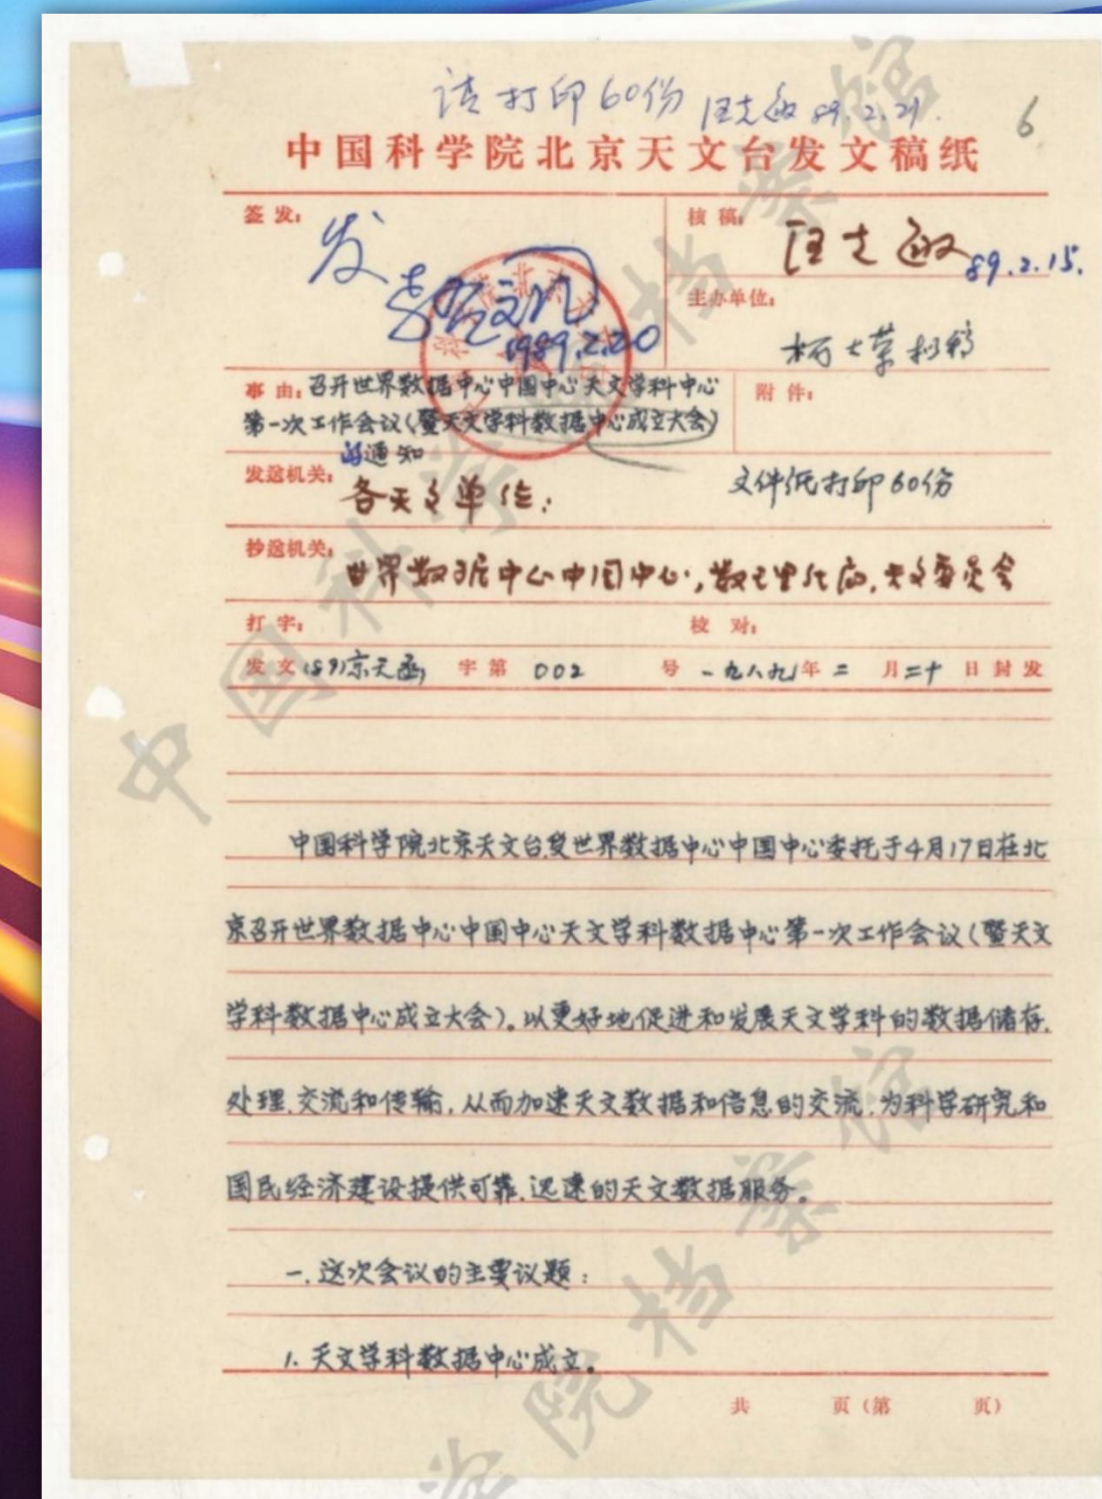 请打印60份 汪克敏 89.2.21.
6
中国科学院北京天文台发文稿纸
签发: 发
1989.2.20
核稿: 汪克敏 89.2.15.
主办单位:
拟稿
事由: 召开世界数据中心中国中心天文学科中心
第一次工作会议(暨天文学科数据中心成立大会)
的通知
附件:
发送机关: 各天文单位:
文件纸打印60份
抄送机关: 世界数据中心中国中心, 数理化局, 天文委员会
打字: 校对:
发文(89)京天函字第 002 号 一九八九年二月二十日封发
中国科学院北京天文台受世界数据中心中国中心委托于4月17日在北
京召开世界数据中心中国中心天文学科数据中心第一次工作会议(暨天文
学科数据中心成立大会)。以更好地促进和发展天文学科的数据储存、
处理、交流和传输,从而加速天文数据和信息的交流,为科学研究和
国民经济建设提供可靠、迅速的天文数据服务。
一、这次会议的主要议题:
1. 天文学科数据中心成立。
共 页(第 页)
中国科学院档案馆
学院档案馆